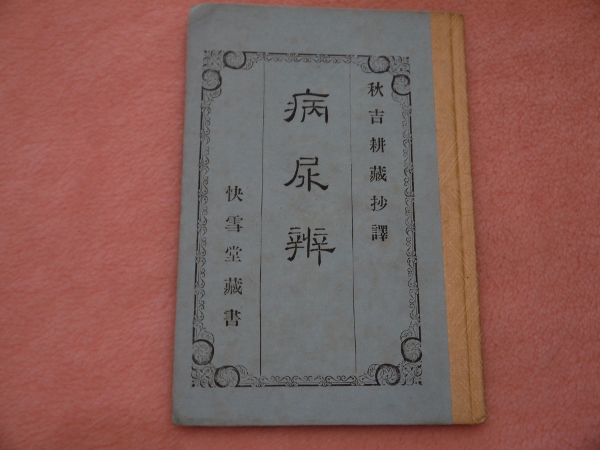 秋吉耕藏抄譯
病尿辨
快雪堂藏書